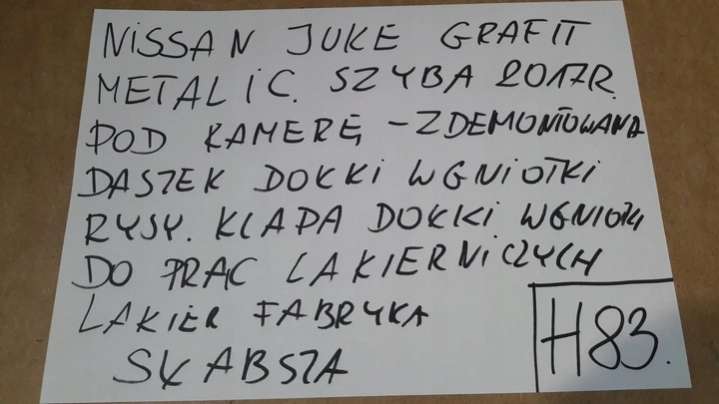 NISSAN JUKE GRAFIT
METALIC. SZYBA 2017R.
POD KAMERĘ - ZDEMONTOWANA
DASZEK DOKKI WGNIOTKI
RYSY. KLAPA DOKKI WGNIOTKI
DO PRAC LAKIERNICZYCH
LAKIER FABRYKA
SŁABSZA
H83.